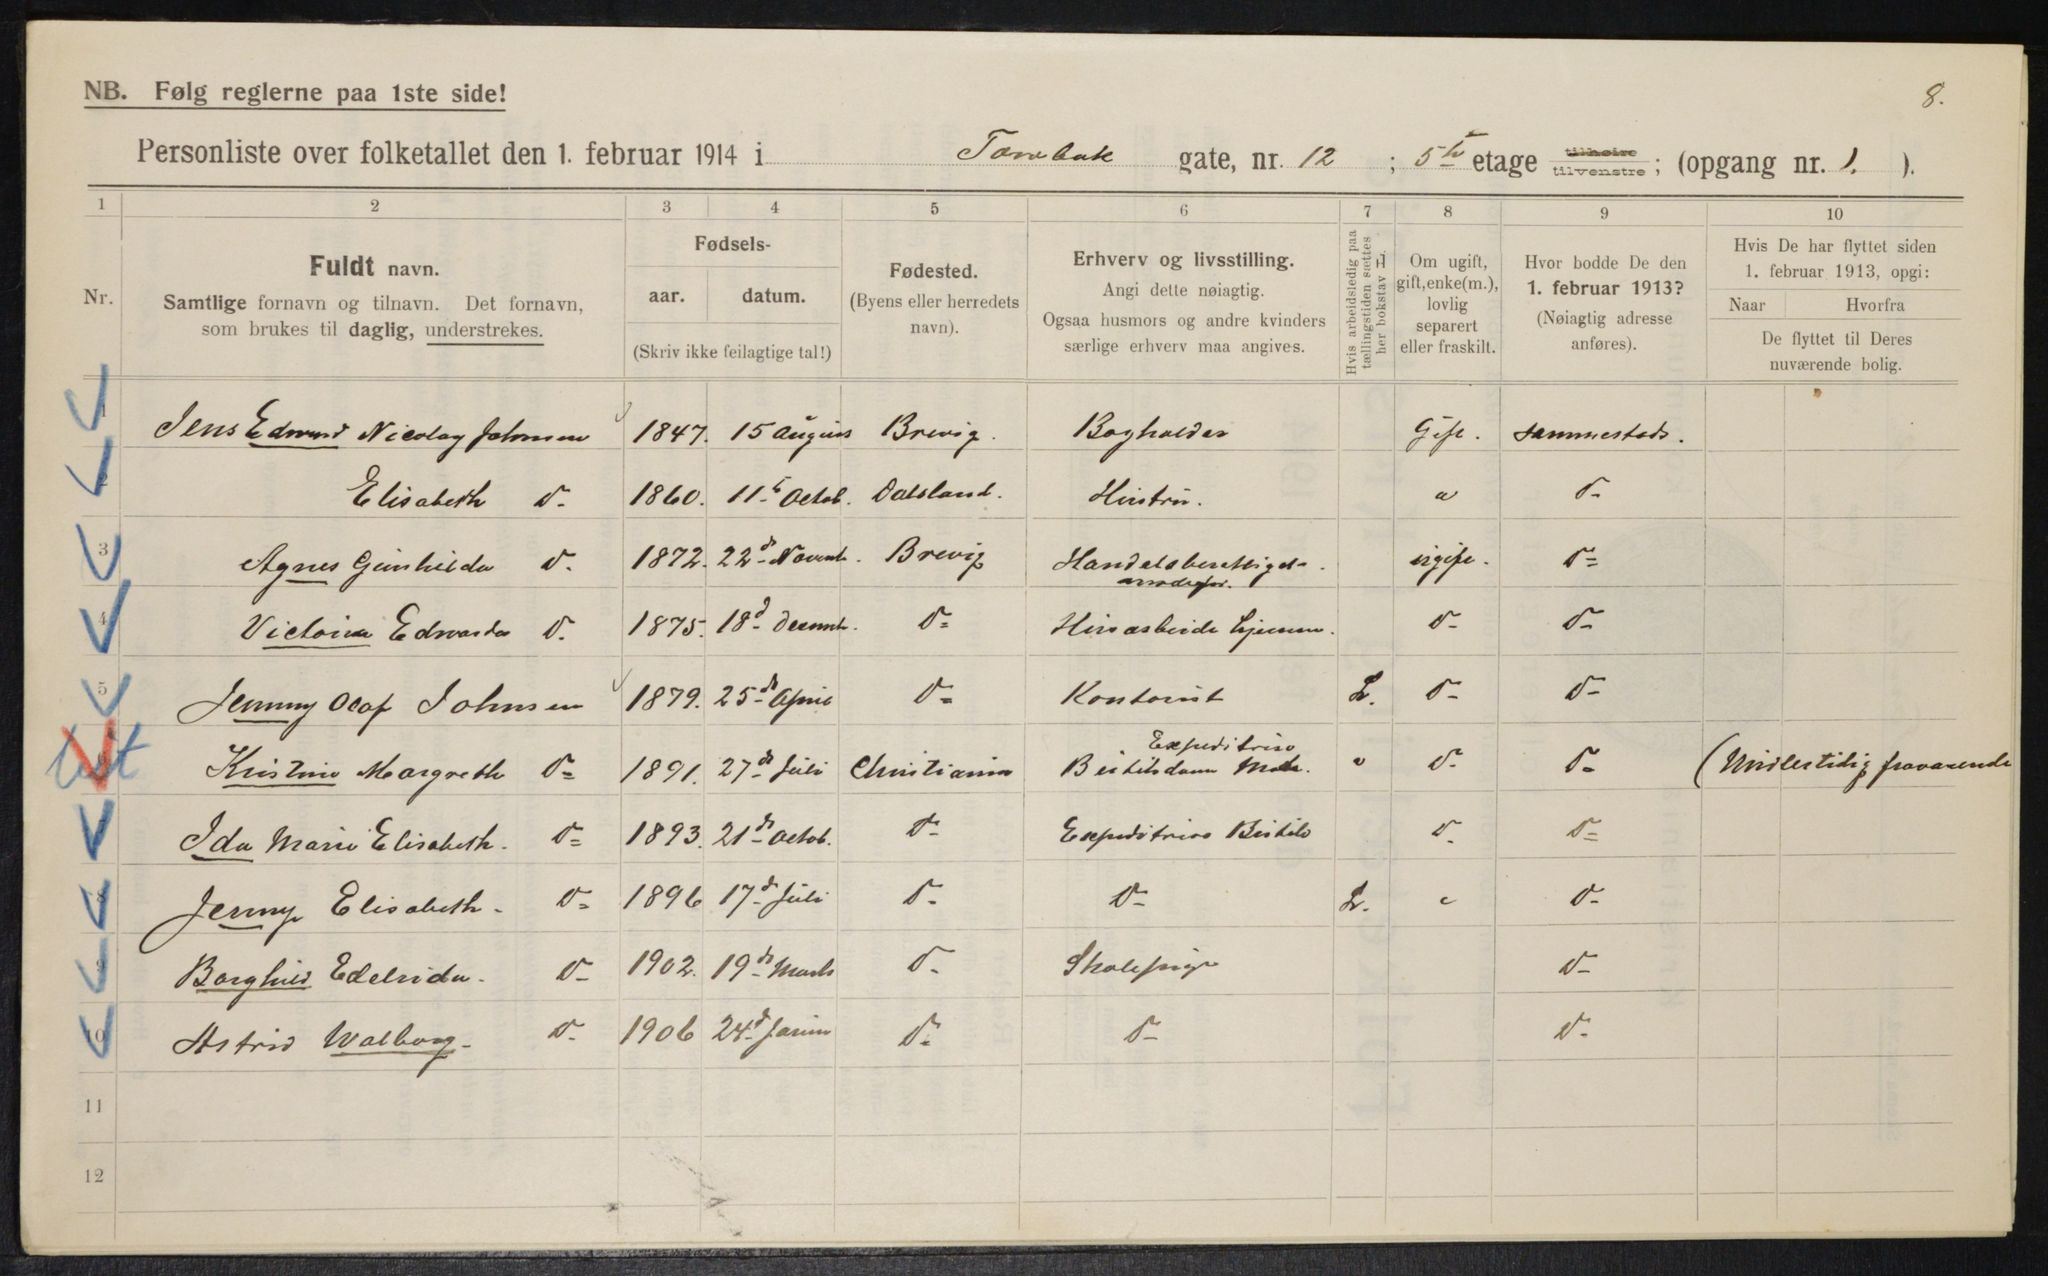 NB. Følg reglerne paa 1ste side!
8.
Personliste over folketallet den 1. februar 1914 i Torvbak gate, nr. 12 ; 5te etage tilhøire tilvenstre ; (opgang nr. 1. ).
1 2 3 4 5 6 7 8 9 10
Nr.
Fuldt navn.
Samtlige fornavn og tilnavn. Det fornavn,
som brukes til daglig, understrekes.
Fødsels-
aar. datum.
(Skriv ikke feilagtige tal!)
Fødested.
(Byens eller herredets
navn).
Erhverv og livsstilling.
Angi dette nøiagtig.
Ogsaa husmors og andre kvinders
særlige erhverv maa angives.
Hvis arbeidsledig paa
tællingstiden sættes
her bokstav L.
Om ugift,
gift, enke(m.),
lovlig
separert
eller fraskilt.
Hvor bodde De den
1. februar 1913?
(Nøiagtig adresse
anføres).
Hvis De har flyttet siden
1. februar 1913, opgi:
Naar Hvorfra
De flyttet til Deres
nuværende bolig.
1 Jens Edmund Nicolay Johnsen 1847. 15 August Brevig. Bogholder Gift. sammesteds.
2 Elisabeth D- 1860. 11te Octob. Dalsland. Hustru. " D-
3 Agnes Gunhilda D- 1872. 22de Novemb. Brevig Handelsberettiget ugift. D=
4 Victoria Edvarda D. 1875. 18de Decemb. D= Husarbeide hjemme. D- D-
5 Jenny Olaf Johnsen 1879. 25de April D= Kontorist L. D- D-
6 Kristine Margreth D= 1891. 27de Juli Christiania Expeditrise " D- D- (Midlertidig fraværende
7 Ida Marie Elisabeth. D= 1893. 21de Octob. D- Expeditrise D. D=
8 Jenny Elisabeth. D= 1896 17de Juli D- D- L. " D-
9 Borghild Edelrida. D- 1902. 19de Marts D- Skolepige D-
10 Astrid Walborg. D- 1906 24de Januar D- D- D-
11
12